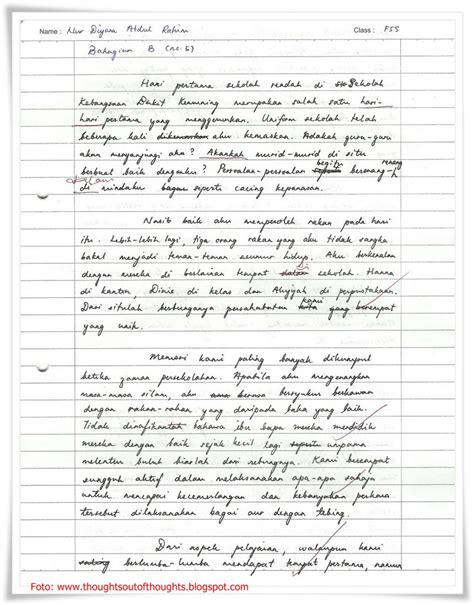 Name : Nur Diyana Abdul Rahim Class : F5S
Bahagian B (no.5)
Hari pertama sekolah rendah di Sekolah
Kebangsaan Bukit Kemuning merupakan salah satu hari-
hari pertama yang menggerunkan. Uniform sekolah telah
beberapa kali aku kemaskan. Adakah guru-guru
akan menyanjungi aku? Akankah murid-murid di situ
berbuat baik denganku? Persoalan-persoalan begitu berenang-renang
di mindaku bagai seperti cacing kepanasan.
Nasib baik aku memperoleh rakan pada hari
itu. Lebih-lebih lagi, tiga orang rakan yang aku tidak sangka
bakal menjadi teman-teman seumur hidup. Aku berkenalan
dengan mereka di berlainan tempat di sekolah. Hanna
di kantin, Dinie di kelas dan Aliyah di perpustakaan.
Dari situlah berbunganya persahabatan kami yang berempat
yang unik.
Memori kami paling banyak dikumpul
ketika zaman persekolahan. Apabila aku mengenangkan
masa-masa silam, aku bersyukur berkawan
dengan rakan-rakan yang daripada baka yang baik.
Tidak dinafikan bahawa ibu bapa mereka mendidik
mereka dengan baik sejak kecil lagi seperti umpama
melentur buluh biarlah dari rebungnya. Kami berempat
sungguh aktif dalam melaksanakan apa-apa sahaja
untuk mencapai kecemerlangan dan kebanyakan perkara
tersebut dilaksanakan bagai aur dengan tebing.
Dari aspek pelajaran, walaupun kami
berlumba-lumba mendapat tempat pertama, namun
Foto: www.thoughtsoutofthoughts.blogspot.com